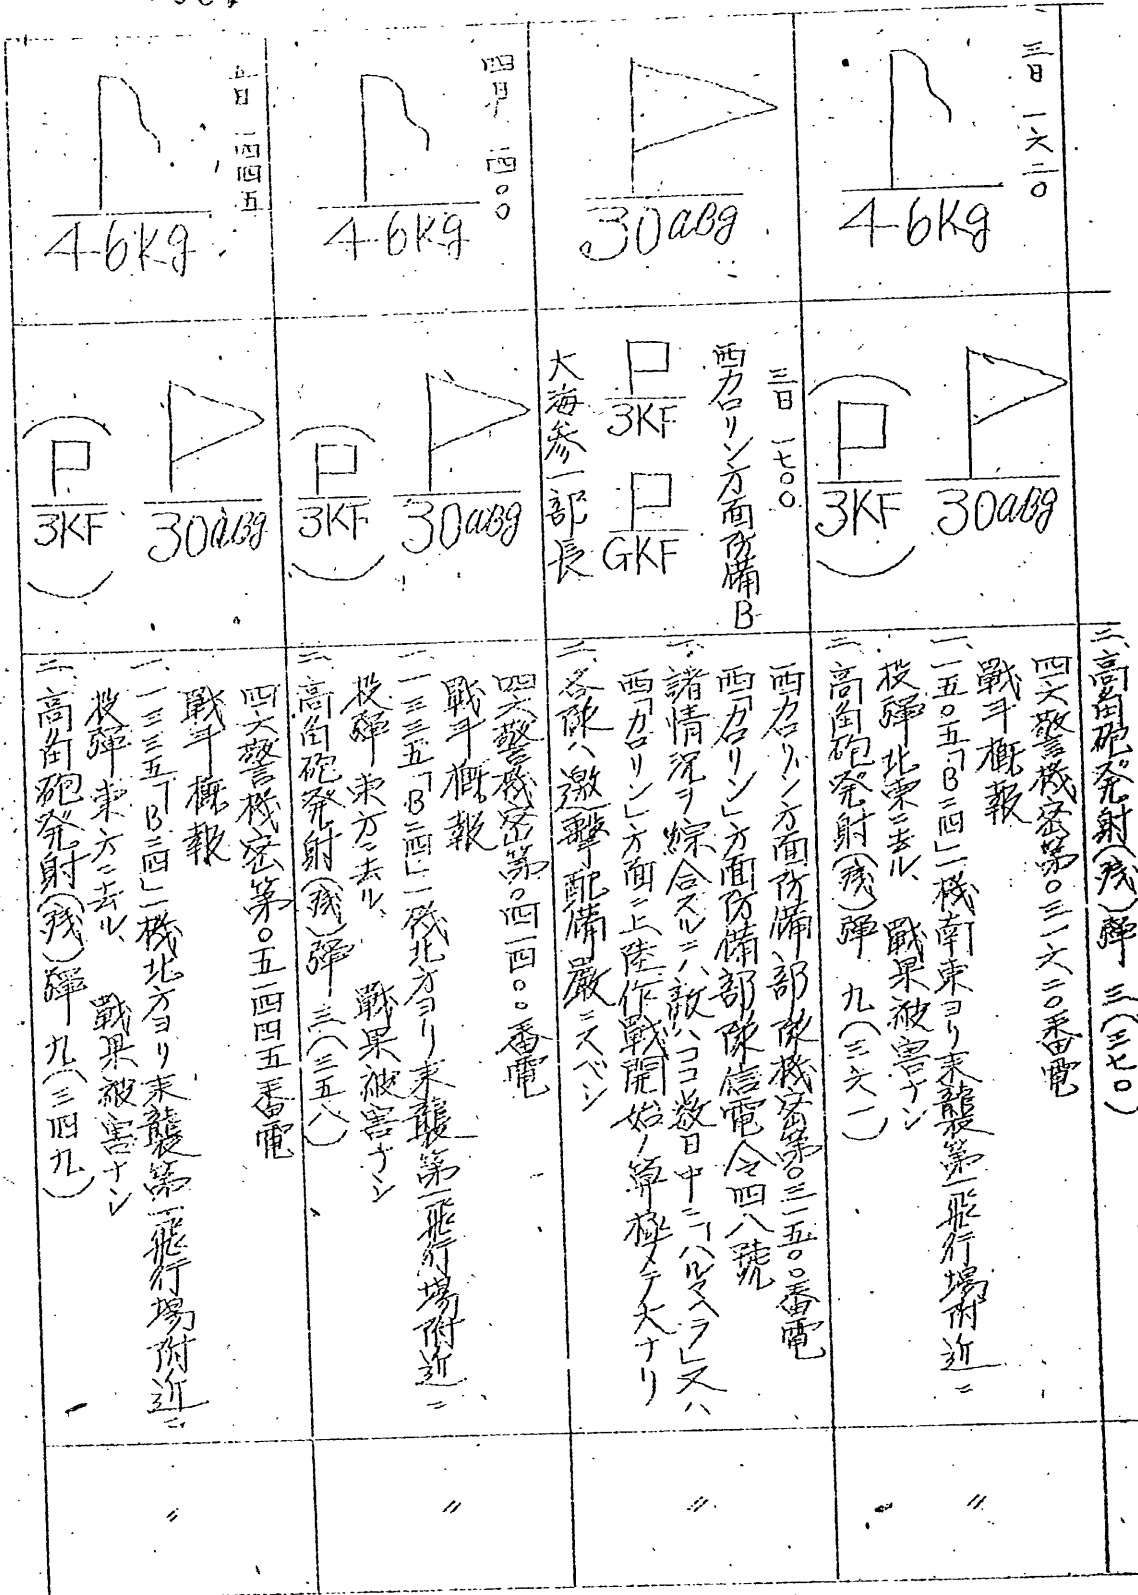 二、高角砲発射(残)弾 三(三七〇)
三日 一六二〇
46Kg
30aBg
(3KF)
四六警機密第〇三一六二〇番電
戰斗概報
一、一五〇五「B二四」一機南東ヨリ来襲第一飛行場附近ニ
投弾北東ニ去ル、 戰果被害ナシ
二、高角砲発射(残)弾 九(三六一)
〃
30aBg
三日 一七〇〇
西カロリン方面防備B
3KF
GKF
大海参一部長
西カロリン方面防備部隊機密第〇三一五〇〇番電
西「カロリン」方面防備部隊信電令四八號
一、諸情況ヲ綜合スルニ敵ハココ数日中ニ「ハルマヘラ」又ハ
西「カロリン」方面ニ上陸作戰開始ノ算極メテ大ナリ
二、各隊ハ邀撃配備厳ニスベシ
〃
四日 一四〇〇
46Kg
30aBg
(3KF)
四六警機密第〇四一四〇〇番電
戰斗概報
一、一三三五「B二四」一機北方ヨリ来襲第一飛行場附近ニ
投弾東方ニ去ル、 戰果被害ナシ
二、高角砲発射(残)弾 三(三五八)
〃
五日 一四四五
46Kg
30aBg
(3KF)
四六警機密第〇五一四四五番電
戰斗概報
一、一三三五「B二四」一機北方ヨリ来襲第一飛行場附近ニ
投弾東方ニ去ル、 戰果被害ナシ
二、高角砲発射(残)弾 九(三四九)
〃